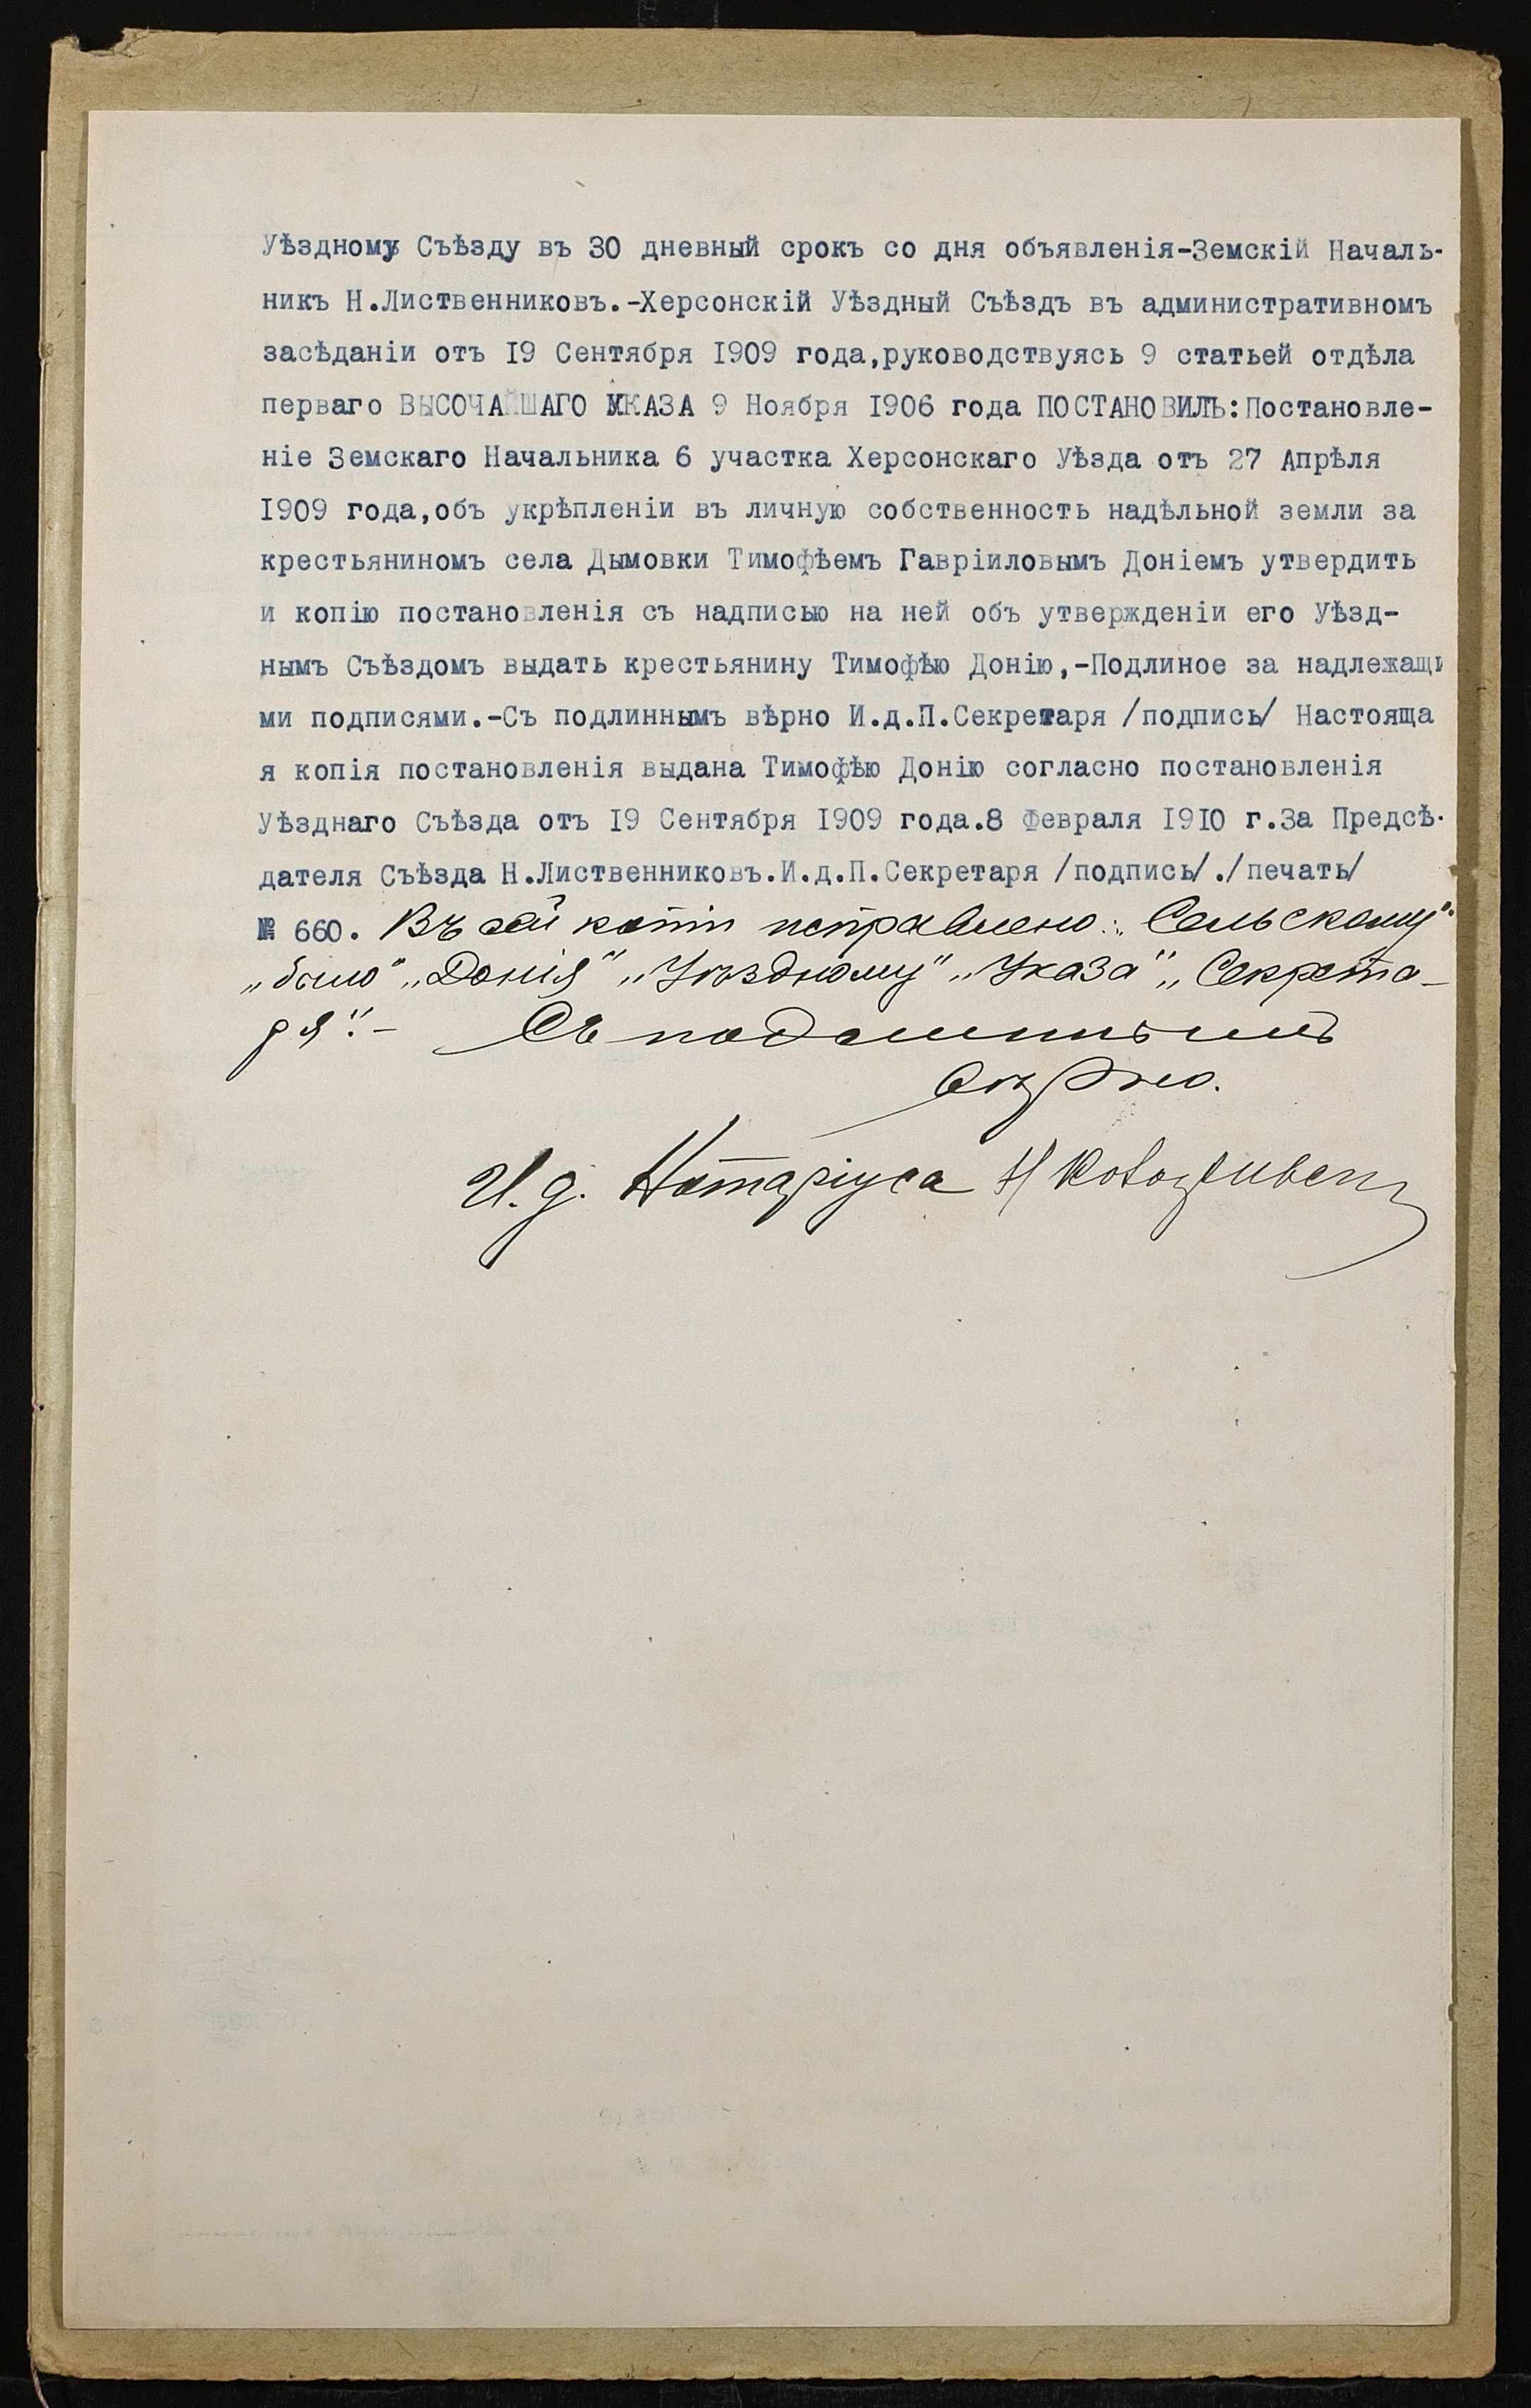 Уѣздному Съѣзду въ 30 дневный срокъ со дня объявленія-Земскій Началь-
никъ Н.Лиственниковъ.-Херсонскій Уѣздный Съѣздъ въ административномъ
засѣданіи отъ I9 Сентября I909 года,руководствуясь 9 статьей отдѣла
перваго ВЫСОЧАЙШАГО УКАЗА 9 Ноября I906 года ПОСТАНОВИЛЪ:Постановле-
ніе Земскаго Начальника 6 участка Херсонскаго Уѣзда отъ 27 Апрѣля
I909 года,объ укрѣпленіи въ личную собственность надѣльной земли за
крестьяниномъ села Дымовки Тимофѣемъ Гавріиловымъ Доніемъ утвердить
и копію постановленія съ надписью на ней объ утвержденіи его Уѣзд-
нымъ Съѣздомъ выдать крестьянину Тимофѣю Донію,-Подлиное за надлежащи
ми подписями.-Съ подлиннымъ вѣрно И.д.П.Секретаря /подпись/ Настояща
я копія постановленія выдана Тимофѣю Донію согласно постановленія
Уѣзднаго Съѣзда отъ I9 Сентября I909 года.8 Февраля I9I0 г.За Предсѣ-
дателя Съѣзда Н.Лиственниковъ.И.д.П.Секретаря /подпись/./печать/
№ 660. Въ сей копіи исправлено: „Сельскому"
„было" „Донія" „Уѣздному" „Указа" „Секрета-
ря".- Съ подлиннымъ
вѣрно.
И.д. Нотаріуса Н